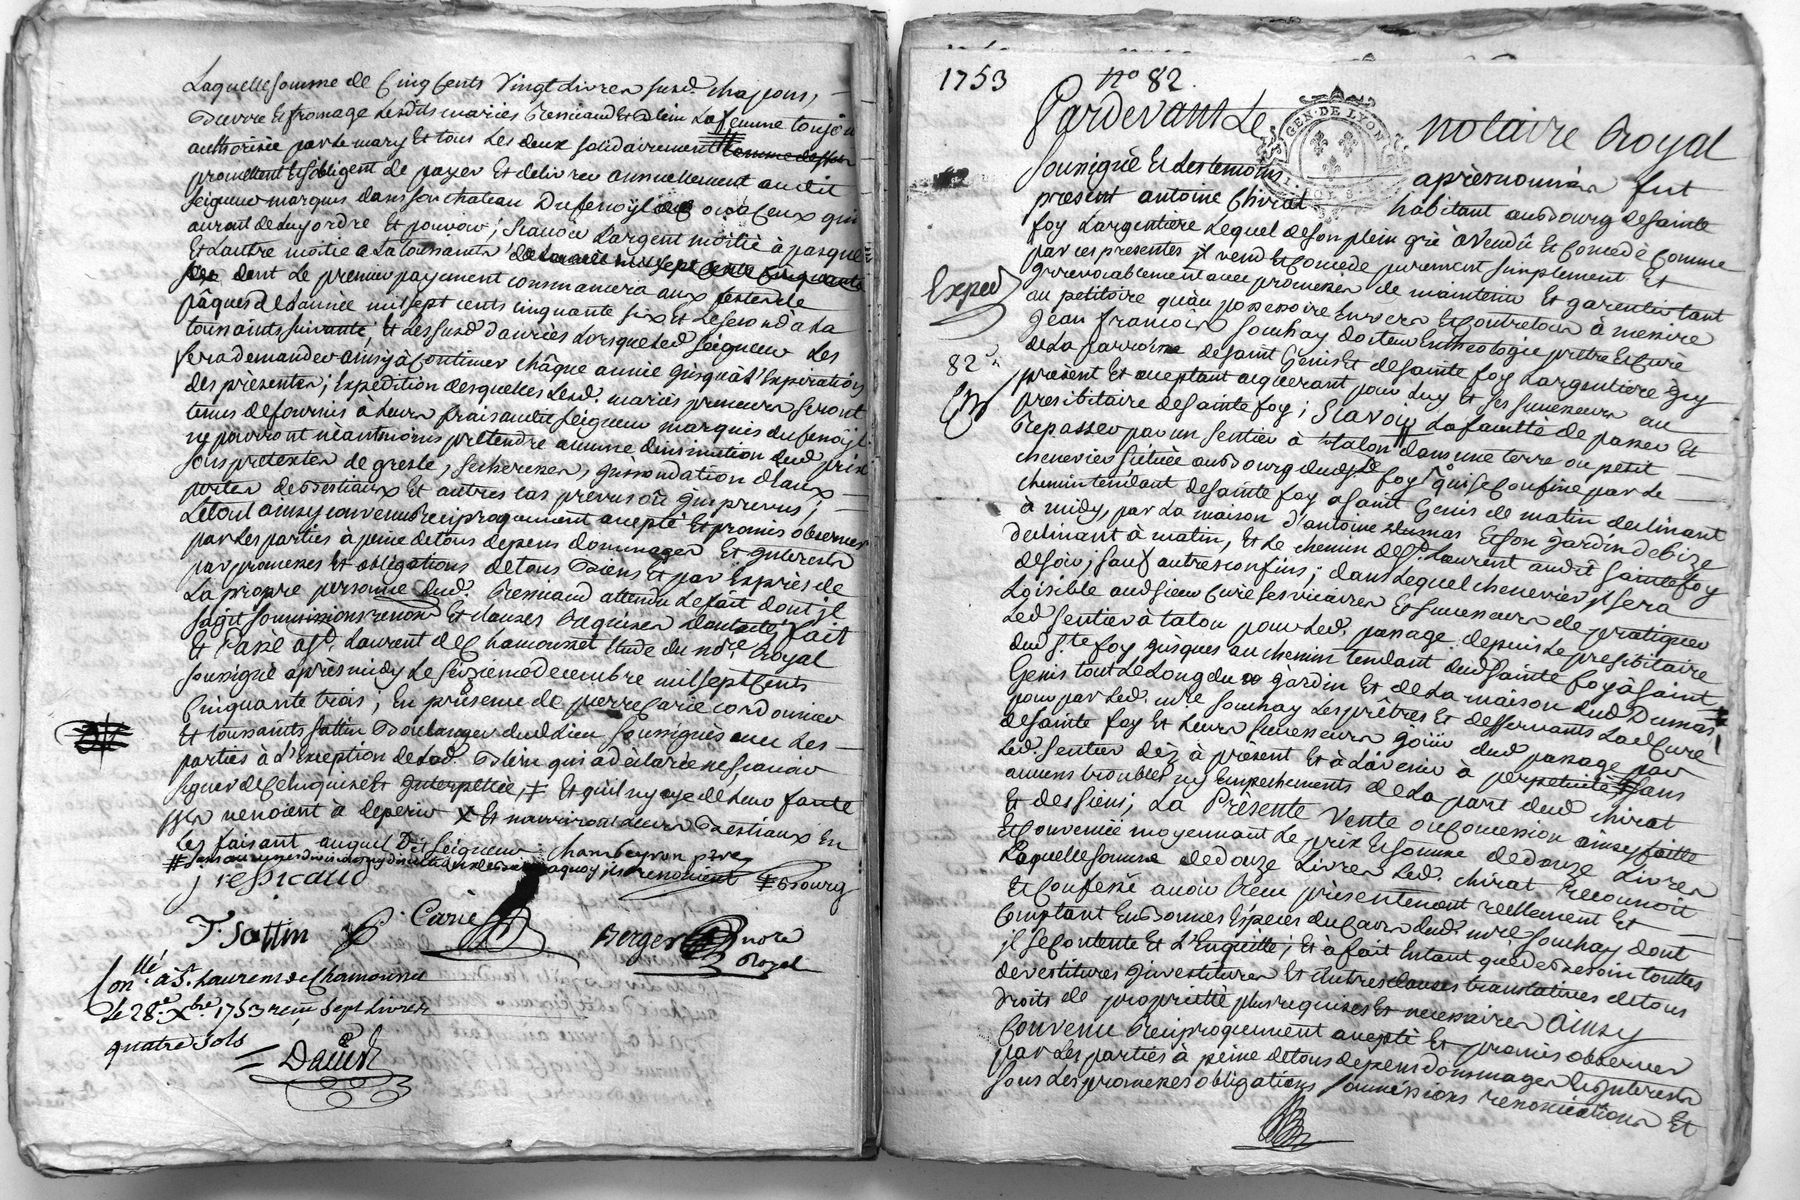 Laquelle somme de Cinq Cents Vingt Livres susd. chapons,
Beurre Et fromage lesdits mariés Ressicaud Et Blein La femme toujou
authorisée par le mary Et tous Les deux solidairement
promettent Et s'obligent de payer Et delivrer annuellement audit
seigneur marquis dans son château Du fenoÿl ou à Ceux qui
auront de Luy ordre Et pouvoir; sçavoir L'argent moitié à pasques
Et L'autre moitié a La toussaints de La année mil sept Cents Cinquante
dont Le premier payement commancera aux festes de
pâques de L'année mil sept cents cinquante six et Le second à La
toussaints suivante, et Les susd. danrées Lorsque Led. seigneur Les
fera demander ainsy à Continuer châque année jusqu'à L'Expiration
des présentes; Expédition desquelles Lesd. mariés preneurs seront
tenus de fournir à Leurs frais audit seigneur marquis du fenoÿl
ne pourront néantmoins prétendre aucune diminution dud. prix
sous pretextes de gresle, secheresse, jnnondation d'eaux
pertes de Bestiaux Et autres cas prevus où jmprevus;
Le tout ainsy convenu Reciproquement accepté Et promis observer
par Les parties à peine de tous depens dommages Et jnterests
par promesses Et obligations de tous Biens Et par Exprès de
La propre personne dud. Ressicaud attendu Le fait dont jl
s'agit soumissions renon. Et clauses Requises fait
Et Passé à St. Laurent de Chamousset Etude du no.re Royal
soussigné après midy Le seizieme decembre mil sept Cents
Cinquante trois, En présence de pierre Carié cordonnier
Et toussaints sottin Boulanger dud. Lieu soussignés avec Les
parties à L'exception de Lad. Blein qui a déclaré ne sçavoir
signer de Ce Enquise Et jnterpellée, ‡ Et qu'il n'y aye de Leur faute
venoient à deperir X Et nourriront Leurs Bestiaux En
Les faisant auquel Dit seigneur chambeyron père
J ressicaud
‡ Bourg
T. Sottin Carié Berger nore
Royal
Con.llé à St. Laurent de Chamousset
Le 28.e Xbre 1753 reçu sept Livres
quatre sols
Daverd
1753 no 82
Pardevant Le notaire Royal
GEN. DE LYON
soussigné Et des temoins aprèsnommés fut
présent antoine Chirat habitant au Bourg de sainte
foy L'argentiere Lequel de son plein gré à Vendû Et Concedé comme
par ces présentes jl vend Et Concede purement simplement Et
jrrevocablement avec promesses de maintenir Et garentir tant
au petitoire qu'au possessoire Envers Et Contre tous à messire
Exped
Jean francois souchay docteur En theologie prêtre Et Curé
de La parroisse de saint Genis Et de sainte foy L'argentiere jcy
82
présent Et aceptant acquerant pour Luy Et ses successeurs au
presibitaire de sainte foy; sçavoir La faculté de passer Et
Repasser par un sentier à talon dans une terre ou petit
chenevier située au Bourg dud. ste. foy qui se Confine par Le
chemin tendant de sainte foy a saint Genis de matin declinant
à midy, par La maison d'antoine Dumas Et son jardin de bize
declinant à matin, Et Le chemin de St. Laurent audit sainte foy
de soir; sauf autres confins; dans Lequel chenevier jl sera
Loisible aud. sieur Curé ses vicaires Et successeurs de pratiquer
Led. sentier à talon pour Led. passage depuis Le presibitaire
dud. ste. foy jusques au chemin tendant dud. sainte foy à saint
Genis tout Le Long du jardin Et de La maison dud. Dumas
pour par Led. m.re souchay Les prêtres Et desservants La Cure
de sainte foy Et Leurs successeurs joüir dud. passage par
Led. sentier dès à présent Et à L'avenir à perpétuité sans
aucuns troubles ny Empechements de La part dud. Chirat
Et des siens; La Présente Vente ou Concession ainsy faitte
Et Convenüe moyennant Le prix Et somme de douze Livres
Laquelle somme de douze Livres Led. Chirat reconnoit
Et Confesse avoir Reçu présentement réellement Et
Comptant En Bonnes Espèces du Cours dud. m.re souchay dont
jl se Contente Et L'En quitte; Et à fait En tant que de Besoin toutes
devestitures jnvestitures Et autres clauses translatives de tous
droits de propriété plus requises Et necessaires Ainsy
Convenu Reciproquement accepté Et promis observer
par Les parties à peine de tous depens dommages Et jnterests
sous Les promesses obligations soumissions renonciations Et